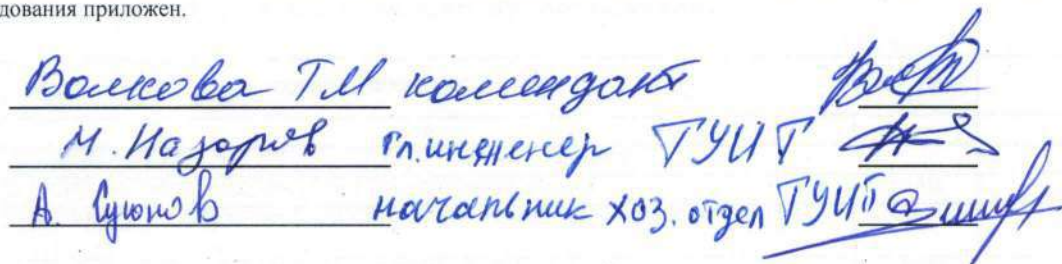 дования приложен.
Волкова ТМ комендант
М. Назаров гл.инженер ТУИТ
А. Суюнов начальник хоз. отдел ТУИТ